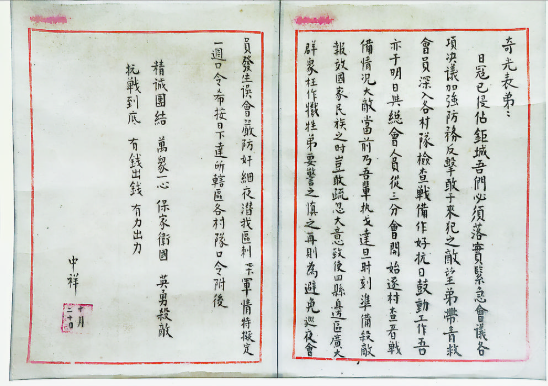 奇光表弟:
日寇已侵佔鉅城吾們必須落實緊急會議各
項決議加強防務反擊敢于來犯之敵望弟帶青救
會員深入各村隊檢查戰備作好抗日鼓動工作吾
亦于明日與總會人員從三分會開始逐村查看戰
備情況大敵當前乃吾輩执戈達旦时刻準備殺敵
報效國家民族之时豈敢疏忽大意致使四縣邊區廣大
群衆枉作犧牲弟要警之慎之再則為避免巡夜會
員發生误會嚴防奸細夜潜我區刺 军情特擬定
一週口令希按日下達所轄區各村隊口令附後
精誠團結 萬衆一心 保家衛國 英勇殺敵
抗戰到底 有钱出钱 有力出力
中祥
十月
二十日